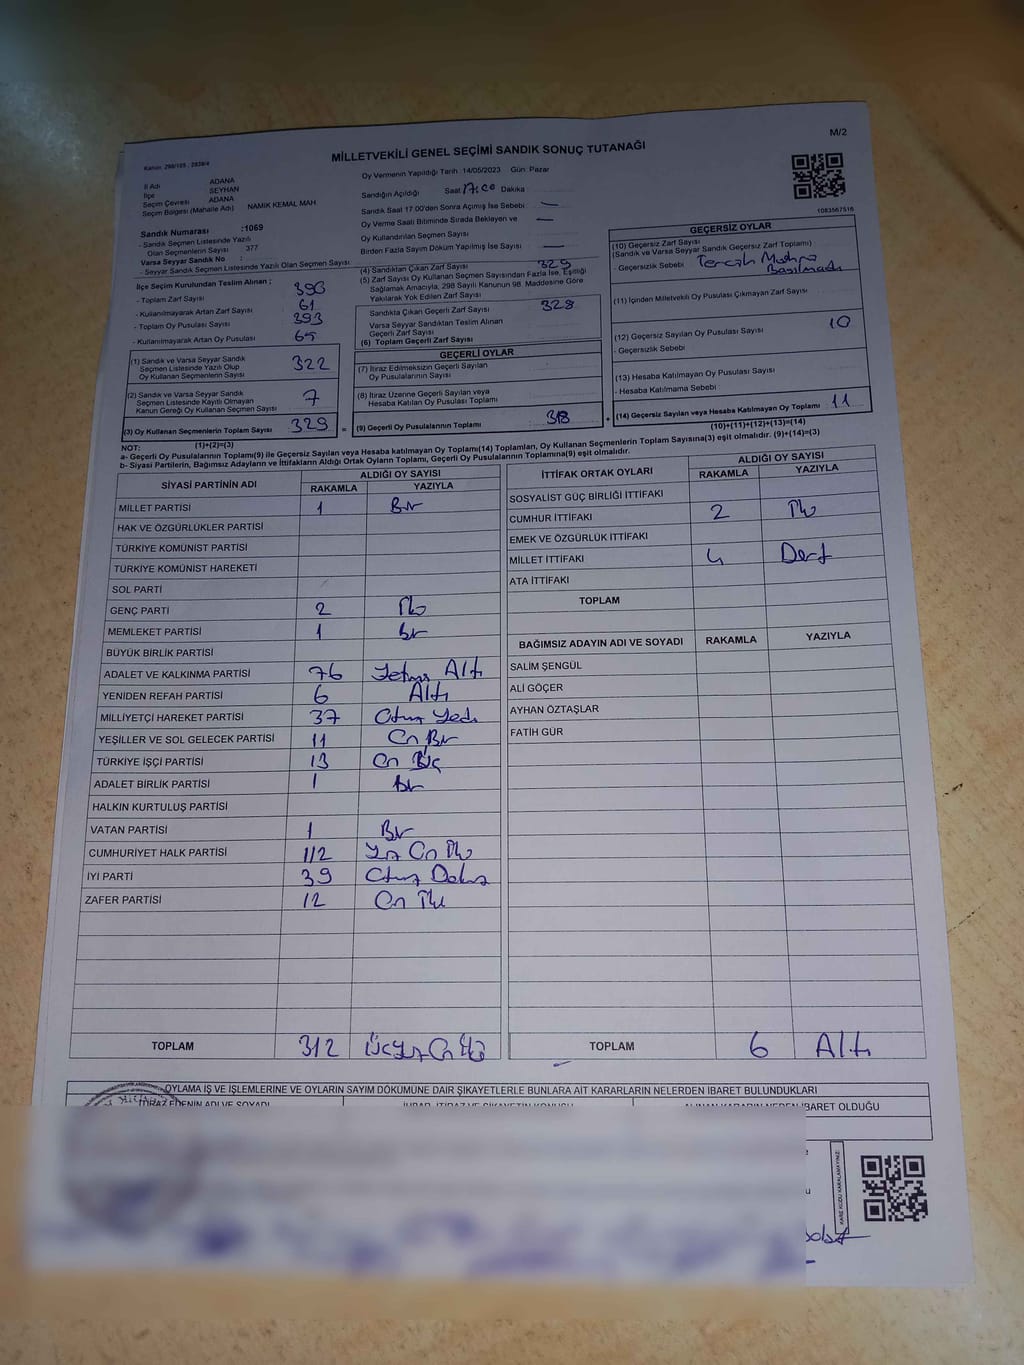 M/2
Kanun: 298/105 ; 2839/4
MİLLETVEKİLİ GENEL SEÇİMİ SANDIK SONUÇ TUTANAĞI
İl Adı ADANA
İlçe SEYHAN
Seçim Çevresi ADANA
Seçim Bölgesi (Mahalle Adı) NAMIK KEMAL MAH
Sandık Numarası :1069
- Sandık Seçmen Listesinde Yazılı
Olan Seçmenlerin Sayısı 377
Varsa Seyyar Sandık No :
- Seyyar Sandık Seçmen Listesinde Yazılı Olan Seçmen Sayısı
Oy Vermenin Yapıldığı Tarih 14/05/2023 Gün: Pazar
Sandığın Açıldığı Saat 17:00 Dakika
Sandık Saat 17.00'den Sonra Açımış İse Sebebi —
Oy Verme Saati Bitiminde Sırada Bekleyen ve —
Oy Kullandırılan Seçmen Sayısı
Birden Fazla Sayım Döküm Yapılmış İse Sayısı —
1083567516
İlçe Seçim Kurulundan Teslim Alınan ;
- Toplam Zarf Sayısı 393
- Kullanılmayarak Artan Zarf Sayısı 61
- Toplam Oy Pusulası Sayısı 393
- Kullanılmayarak Artan Oy Pusulası 65
(1) Sandık ve Varsa Seyyar Sandık
Seçmen Listesinde Yazılı Olup
Oy Kullanan Seçmenlerin Sayısı 322
(2) Sandık ve Varsa Seyyar Sandık
Seçmen Listesinde Kayıtlı Olmayan
Kanun Gereği Oy Kullanan Seçmen Sayısı 7
(3) Oy Kullanan Seçmenlerin Toplam Sayısı 329
(1)+(2)=(3)
(4) Sandıktan Çıkan Zarf Sayısı 329
(5) Zarf Sayısı Oy Kullanan Seçmen Sayısından Fazla İse, Eşitliği
Sağlamak Amacıyla, 298 Sayılı Kanunun 98. Maddesine Göre
Yakılarak Yok Edilen Zarf Sayısı
Sandıkta Çıkan Geçerli Zarf Sayısı 328
Varsa Seyyar Sandıktan Teslim Alınan
Geçerli Zarf Sayısı
(6) Toplam Geçerli Zarf Sayısı
GEÇERLİ OYLAR
(7) İtiraz Edilmeksizin Geçerli Sayılan
Oy Pusulalarının Sayısı
(8) İtiraz Üzerine Geçerli Sayılan veya
Hesaba Katılan Oy Pusulası Toplamı
= (9) Geçerli Oy Pusulalarının Toplamı 318 +
GEÇERSİZ OYLAR
(10) Geçersiz Zarf Sayısı
(Sandık ve Varsa Seyyar Sandık Geçersiz Zarf Toplamı)
- Geçersizlik Sebebi Tercih Mührü
Basılmadı
(11) İçinden Milletvekili Oy Pusulası Çıkmayan Zarf Sayısı
(12) Geçersiz Sayılan Oy Pusulası Sayısı 10
- Geçersizlik Sebebi
(13) Hesaba Katılmayan Oy Pusulası Sayısı
- Hesaba Katılmama Sebebi
(14) Geçersiz Sayılan veya Hesaba Katılmayan Oy Toplamı 11
(10)+(11)+(12)+(13)=(14)
NOT:
a- Geçerli Oy Pusulalarının Toplamı(9) ile Geçersiz Sayılan veya Hesaba Katılmayan Oy Toplamı(14) Toplamları, Oy Kullanan Seçmenlerin Toplam Sayısına(3) eşit olmalıdır. (9)+(14)=(3)
b- Siyasi Partilerin, Bağımsız Adayların ve İttifakların Aldığı Ortak Oyların Toplamı, Geçerli Oy Pusulalarının Toplamına(9) eşit olmalıdır.
SİYASİ PARTİNİN ADI ALDIĞI OY SAYISI
RAKAMLA YAZIYLA
MİLLET PARTİSİ 1 Bir
HAK VE ÖZGÜRLÜKLER PARTİSİ
TÜRKİYE KOMÜNİST PARTİSİ
TÜRKİYE KOMÜNİST HAREKETİ
SOL PARTİ
GENÇ PARTİ 2 İki
MEMLEKET PARTİSİ 1 Bir
BÜYÜK BİRLİK PARTİSİ
ADALET VE KALKINMA PARTİSİ 76 Yetmiş Altı
YENİDEN REFAH PARTİSİ 6 Altı
MİLLİYETÇİ HAREKET PARTİSİ 37 Otuz Yedi
YEŞİLLER VE SOL GELECEK PARTİSİ 11 On Bir
TÜRKİYE İŞÇİ PARTİSİ 13 On Üç
ADALET BİRLİK PARTİSİ 1 Bir
HALKIN KURTULUŞ PARTİSİ
VATAN PARTİSİ 1 Bir
CUMHURİYET HALK PARTİSİ 112 Yüz On İki
İYİ PARTİ 39 Otuz Dokuz
ZAFER PARTİSİ 12 On İki
TOPLAM 312 Üçyüz On İki
İTTİFAK ORTAK OYLARI ALDIĞI OY SAYISI
RAKAMLA YAZIYLA
SOSYALİST GÜÇ BİRLİĞİ İTTİFAKI
CUMHUR İTTİFAKI 2 İki
EMEK VE ÖZGÜRLÜK İTTİFAKI
MİLLET İTTİFAKI 4 Dört
ATA İTTİFAKI
TOPLAM
BAĞIMSIZ ADAYIN ADI VE SOYADI RAKAMLA YAZIYLA
SALİM ŞENGÜL
ALİ GÖÇER
AYHAN ÖZTAŞLAR
FATİH GÜR
TOPLAM 6 Altı
OYLAMA İŞ VE İŞLEMLERİNE VE OYLARIN SAYIM DÖKÜMÜNE DAİR ŞİKAYETLERLE BUNLARA AİT KARARLARIN NELERDEN İBARET BULUNDUKLARI
İTİRAZ EDENİN ADI VE SOYADI İHBAR, İTİRAZ VE ŞİKAYETİN KONUSU ALINAN KARARIN NEDEN İBARET OLDUĞU
KARE KODU KARALAMAYINIZ